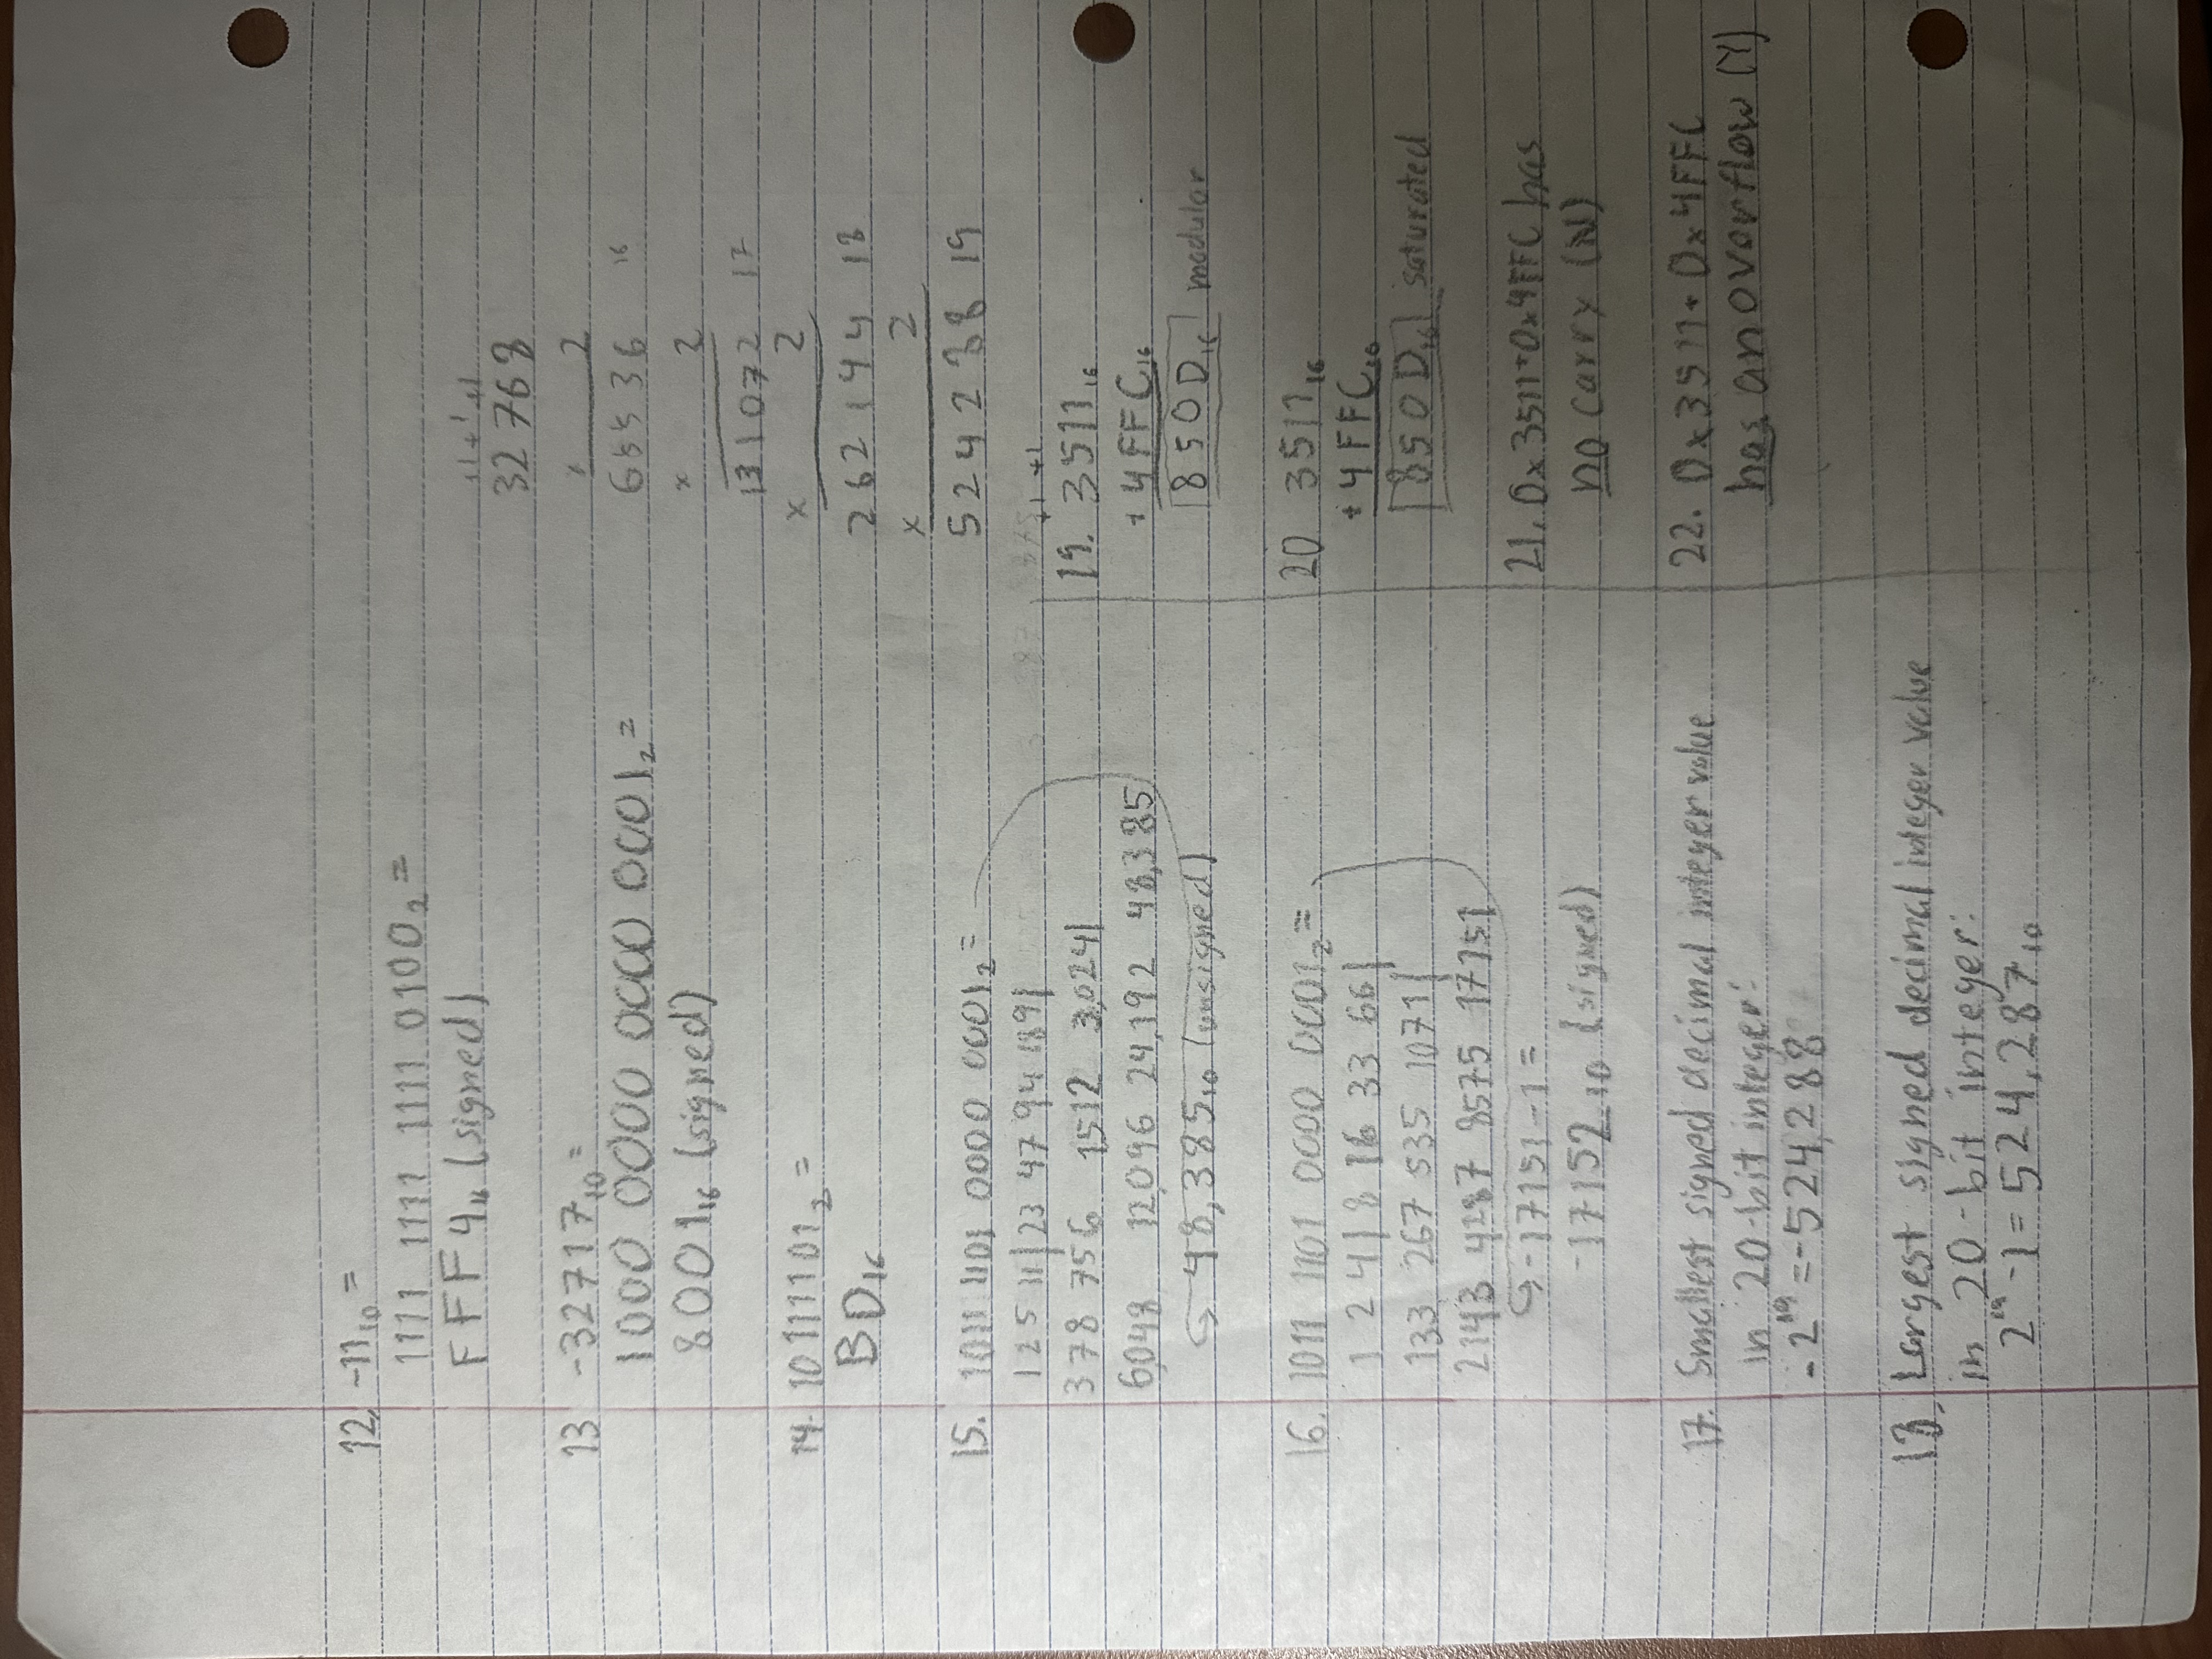 12. -11₁₀ =
1111 1111 1111 0100₂ =
FFF4₁₆ (signed)
13 -32717₁₀ =
1000 0000 0000 0001₂ =
8001₁₆ (signed)
14. 10111101₂ =
BD₁₆
15. 1011 1101 0000 0001₂ =
1 2 5 11| 23 47 94 189|
378 756 1,512 3,024|
6,048 12,096 24,192 48,385
↪ 48,385₁₀ (unsigned)
16. 1011 1101 0000 0001₂ =
1 2 4| 8 16 33 66|
133 267 535 1071|
2143 4287 8575 17151
↪ -17151 - 1 =
-17152₁₀ (signed)
17. Smallest signed decimal integer value
in 20-bit integer:
-2¹⁹ = -524,288
18. Largest signed decimal integer value
in 20-bit integer:
2¹⁹ - 1 = 524,287₁₀
+1 +1 +1
32768
x 2
65536 16
x 2
131072 17
x 2
262144 18
x 2
524288 19
+1 +1
19. 3511₁₆
+ 4FFC₁₆
850D₁₆ modular
20 3511₁₆
+ 4FFC₁₆
850D₁₆ saturated
21. 0x3511+0x4FFC has
no carry (N)
22. 0x3511+ 0x4FFC
has an overflow (Y)